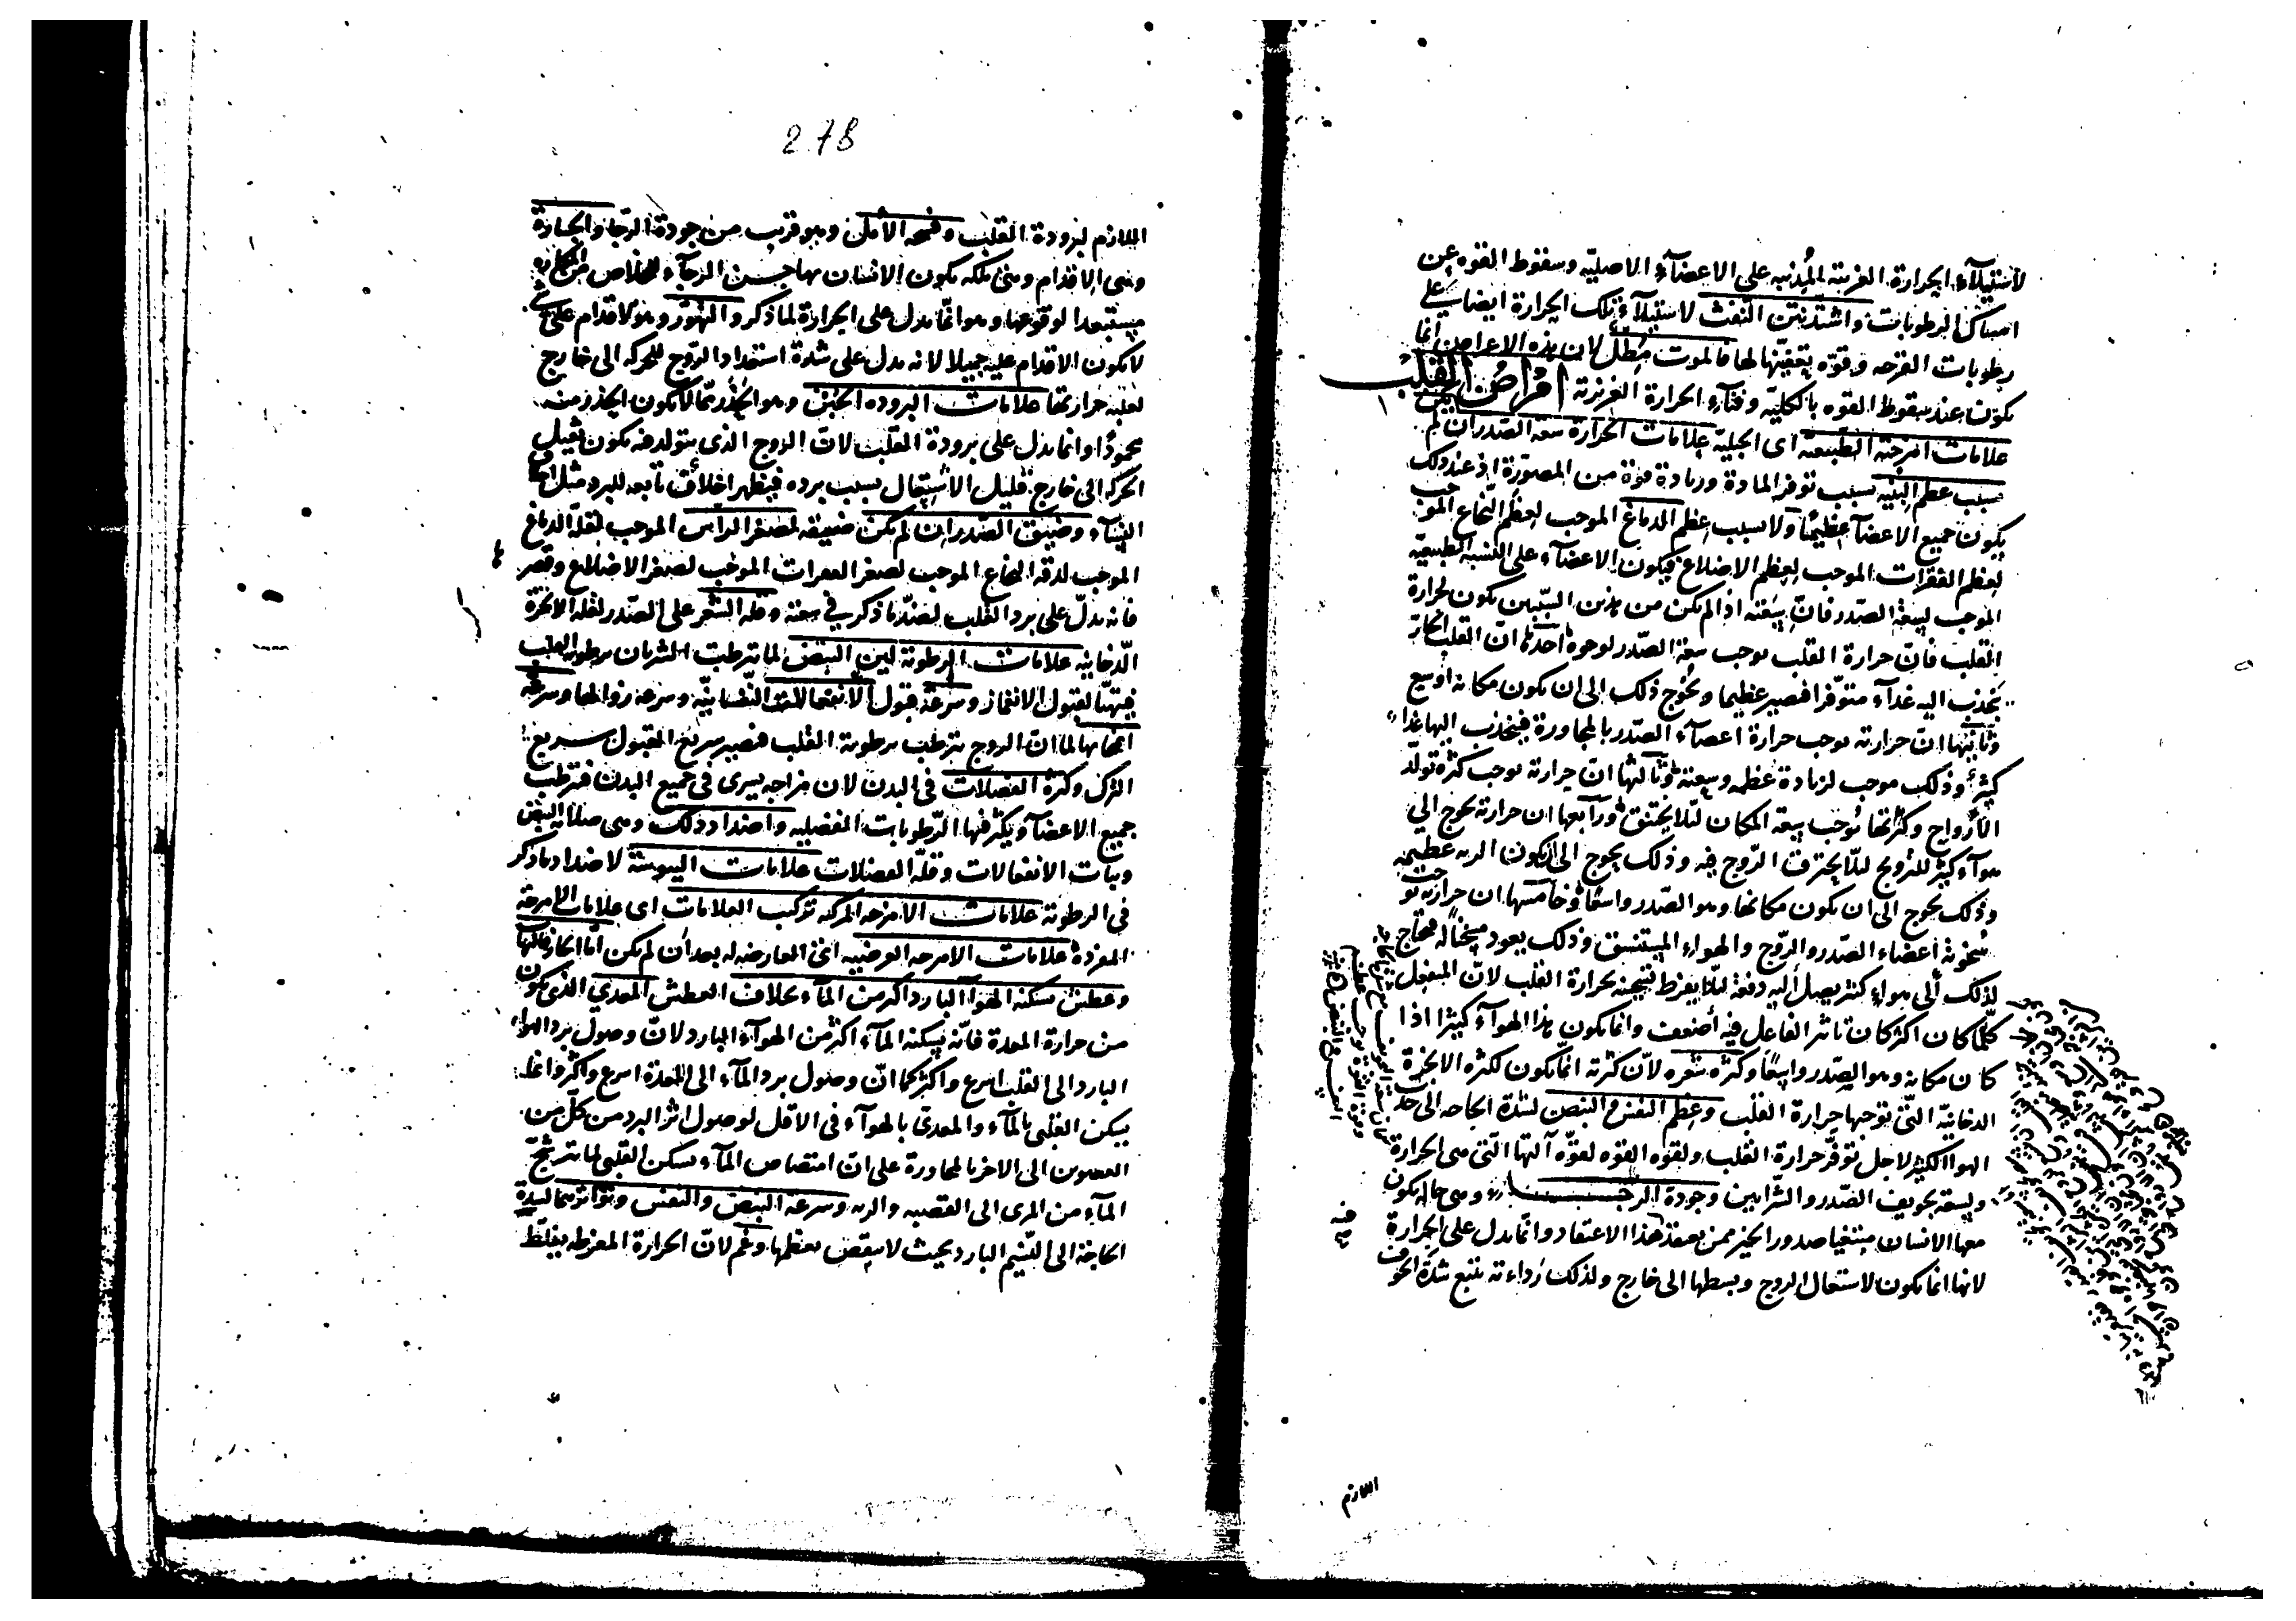 لاستيلاء الحرارة الغريبة المذيبة على الاعضاء الاصلية وسقوط القوة عن
امساك الرطوبات واشتد نتن النفث لاستيلاء تلك الحرارة ايضا على
رطوبات القرحة وقوة تعفينها لها فالموت مطل لان هذه الاعراض انما
تكون عند سقوط القوة بالكلية وفناء الحرارة الغريزية امراض القلب
علامات امزجته الطبيعية اى الجبلية علامات الحرارة سعة الصدر ان لم يكن
بسبب عظم البنية بسبب توفر المادة وزيادة قوة من المصورة اذ عند ذلك
يكون جميع الاعضاء عظيما ولا بسبب عظم الدماغ الموجب لعظم النخاع الموجب
لعظم الفقرات الموجب لعظم الاضلاع فيكون الاعضاء على النسبة الطبيعية
الموجب لسعة الصدر فان سعته اذا لم يكن من هذين السببين يكون لحرارة
القلب فان حرارة القلب توجب سعة الصدر لوجوه احدها ان القلب الحار
ينجذب اليه غذاء متوفر فيصير عظيما ويحوج ذلك الى ان يكون مكانه اوسع
وثانيها ان حرارته توجب حرارة اعضاء الصدر بالمجاورة فينجذب اليها غذاء
كثير وذلك موجب لزيادة عظمه وسعته وثالثها ان حرارته توجب كثرة تولد
الارواح وكثرتها توجب سعة المكان لئلا يختنق ورابعها ان حرارته تحوج الى
هواء كثير للترويح لئلا يحترق الروح فيه وذلك يحوج الى ان يكون الرية عظيمة
وذلك يحوج الى ان يكون مكانها وهو الصدر واسعا وخامسها ان حرارته توجب
سخونة اعضاء الصدر والروح والهواء المستنشق وذلك يعود مسخنا له فيحتاج
لذلك الى هواء كثير يصل اليه دفعة لئلا يفرط تسخينه بحرارة القلب لان المنفعل
كلما كان اكثر كان تاثر الفاعل فيه اضعف وانما يكون هذا الهواء كثيرا اذا
كان مكانه وهو الصدر واسعا وكثرة شعره لان كثرته انما يكون لكثرة الابخرة
الدخانية التى توجبها حرارة القلب وعظم النفس والنبض لشدة الحاجة الى جذب
الهواء الكثير لاجل توفر حرارة القلب ولقوة القوة لقوة آلتها التى هى الحرارة
ولسعة تجويف الصدر والشرايين وجودة الرجاء وهى حالة يكون
معها الانسان متبغيا صدور الخير ممن يعتقد هذا الاعتقاد وانما يدل على الحرارة
لانها انما تكون لاشتعال الروح وبسطها الى خارج ولذلك رداءته يتبع شدة الخوف
اللازم
278
اللازم لبرودة القلب وفسحة الامل وهو قريب من جودة الرجاء والجسارة
وهى الاقدام وهى ملكة يكون الانسان بها حسن الرجاء للخلاص من المكاره
مستبعدا لوقوعها وهو انما يدل على الحرارة لما ذكر والتهور وهو الاقدام على شئ
لا يكون الاقدام عليه جميلا لانه يدل على شدة استعداد الروح للحركة الى خارج
لغلبة حرارتها علامات البرودة الجبن وهو الحذر مما لا يكون الحذر منه
محمودا وانما يدل على برودة القلب لان الروح الذى يتولد منه يكون ثقيل
الحركة الى خارج قليل الاشتعال بسبب برده فيظهر اخلاق تابعة للبرد مثل اخلاق
النساء وضيق الصدر ان لم يكن ضيقه لصغر الراس الموجب لقلة الدماغ
الموجب لدقة النخاع الموجب لصغر الفقرات الموجب لصغر الاضلاع وقصرها
فانه يدل على برد القلب لضد ما ذكر فى سعته وقلة الشعر على الصدر لقلة الابخرة
الدخانية علامات الرطوبة لين النبض لما ترطب الشريان برطوبة القلب
فيتهيا لقبول الانغماز وسرعة قبول الانفعالات النفسانية وسرعة زوالها وسرعة
انمحائها لما ان الروح يترطب برطوبة القلب فيصير سريع القبول سريع
الترك وكثرة الفضلات فى البدن لان مزاجه يسرى فى جميع البدن فترطب
جميع الاعضاء ويكثر فيها الرطوبات الفضلية واضداد ذلك وهى صلابة النبض
وثبات الانفعالات وقلة الفضلات علامات اليبوسة لاضداد ما ذكر
فى الرطوبة علامات الامزجة المركبة تركيب العلامات اى علامات الامزجة
المفردة علامات الامزجة العرضية اعنى العارضة له بعد ان لم يكن اما الحار فالتهاب
وعطش يسكنه الهواء البارد اكثر من الماء بخلاف العطش المعدى الذى يكون
من حرارة المعدة فانه يسكنه الماء اكثر من الهواء البارد لان وصول برد الهواء
البارد الى القلب اسرع واكثر كما ان وصول برد الماء الى المعدة اسرع واكثر وانما
يسكن القلبى بالماء والمعدى بالهواء فى الاقل لوصول اثر البرد من كل من
العضوين الى الاخر بالمجاورة على ان امتصاص الماء يسكن القلبى لما يترشح
الماء من المرى الى القصبة والرية وسرعة النبض والنفس وتواترهما لشدة
الحاجة الى النسيم البارد بحيث لا ينقص بعظمها وغم لان الحرارة المفرطة يغلظ